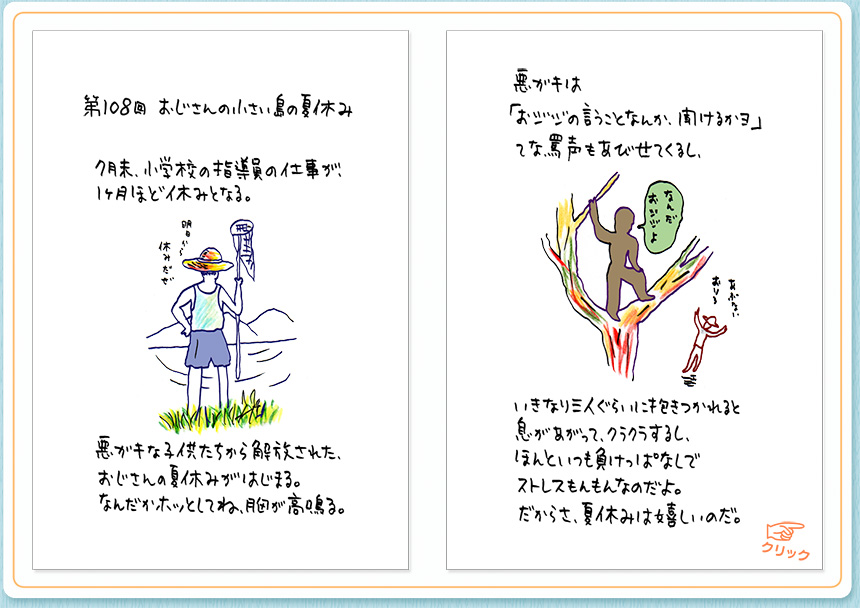 第108回 おじさんの小さい島の夏休み
7月末、小学校の指導員の仕事が、
1ヶ月ほど休みとなる。
明日から
休みだぜ
悪ガキな子供たちから解放された、
おじさんの夏休みがはじまる。
なんだかホッとしてね、胸が高鳴る。
悪ガキは
「おジジの言うことなんか、聞けるかヨ」
てな罵声もあびせてくるし、
なんだ
おジジよ
あぶない
おりろ
いきなり三人ぐらいに抱きつかれると
息があがって、クラクラするし、
ほんといつも負けっぱなしで
ストレスもんもんなのだよ。
だからさ、夏休みは嬉しいのだ。
クリック